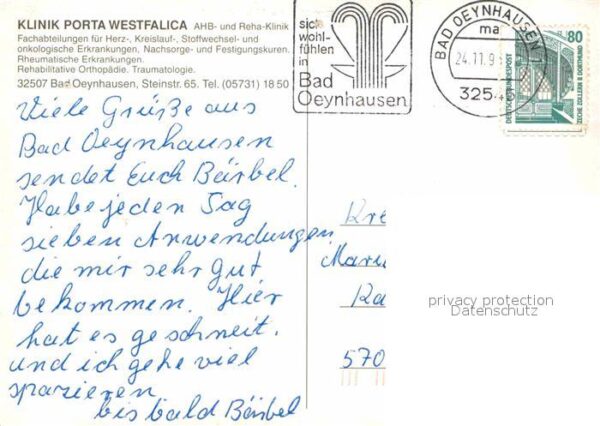 KLINIK PORTA WESTFALICA AHB- und Reha-Klinik
Fachabteilungen für Herz-, Kreislauf-, Stoffwechsel- und
onkologische Erkrankungen, Nachsorge- und Festigungskuren.
Rheumatische Erkrankungen.
Rehabilitative Orthopädie. Traumatologie.
32507 Bad Oeynhausen, Steinstr. 65. Tel. (05731) 18 50
wohl-
fühlen
in
Bad
Oeynhausen
BAD OEYNHAUSEN
ma
24.11.9
325
80
DEUTSCHE BUNDESPOST
ZECHE ZOLLERN II DORTMUND
Viele Grüße aus
Bad Oeynhausen
sendet Euch Bärbel.
Habe jeden Tag
sieben Anwendungen
die mir sehr gut
bekommen. Hier
hat es geschneit.
und ich gehe viel
spazieren
bis bald Bärbel
570
privacy protection
Datenschutz